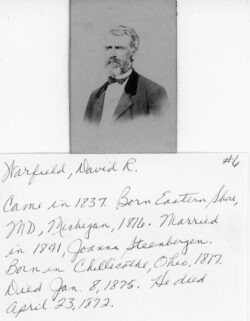 Warfield, David R. #6
Came in 1837. Born Eastern Shore,
MD, Michigan, 1816. Married
in 1841, Joanna Steenbergen.
Born in Chillicothe, Ohio. 1817.
Died Jan. 8, 1875. He died
April 23, 1872.